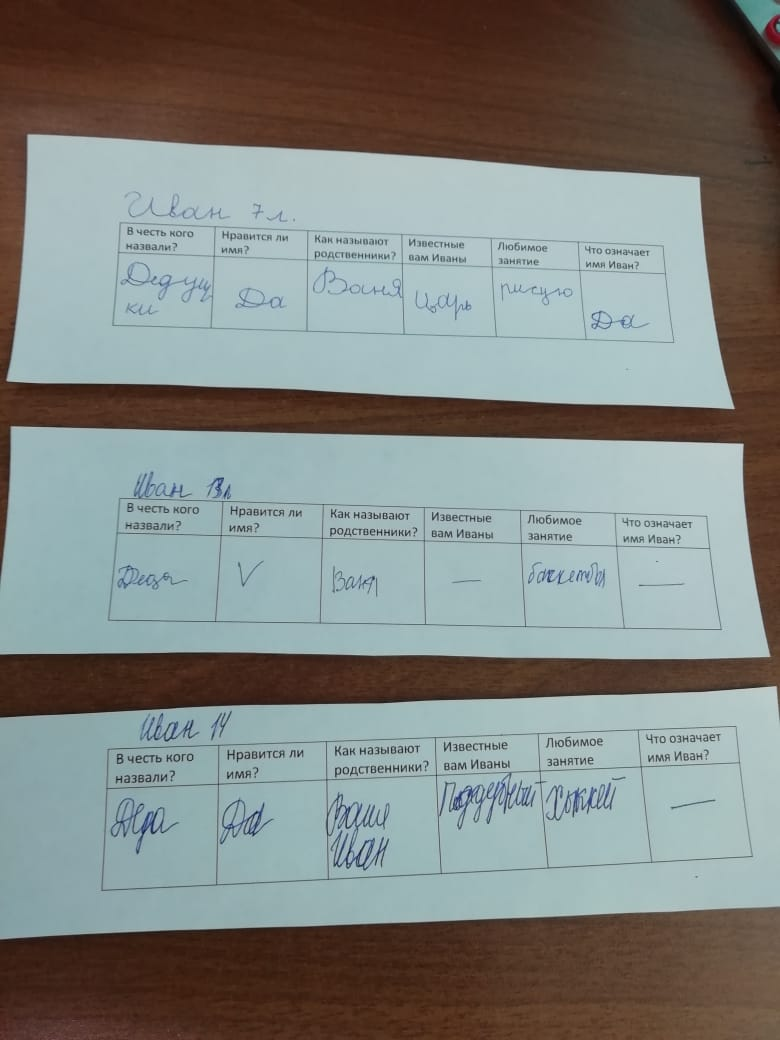 Иван 7 л.
В честь кого назвали? Нравится ли имя? Как называют родственники? Известные вам Иваны Любимое занятие Что означает имя Иван?
Дедушки Да Ваня Царь рисую Да
Иван 13 л
В честь кого назвали? Нравится ли имя? Как называют родственники? Известные вам Иваны Любимое занятие Что означает имя Иван?
Деда V Ваня — —
Иван 14
В честь кого назвали? Нравится ли имя? Как называют родственники? Известные вам Иваны Любимое занятие Что означает имя Иван?
Деда Да Ваня Иван Поддубный Хоккей —